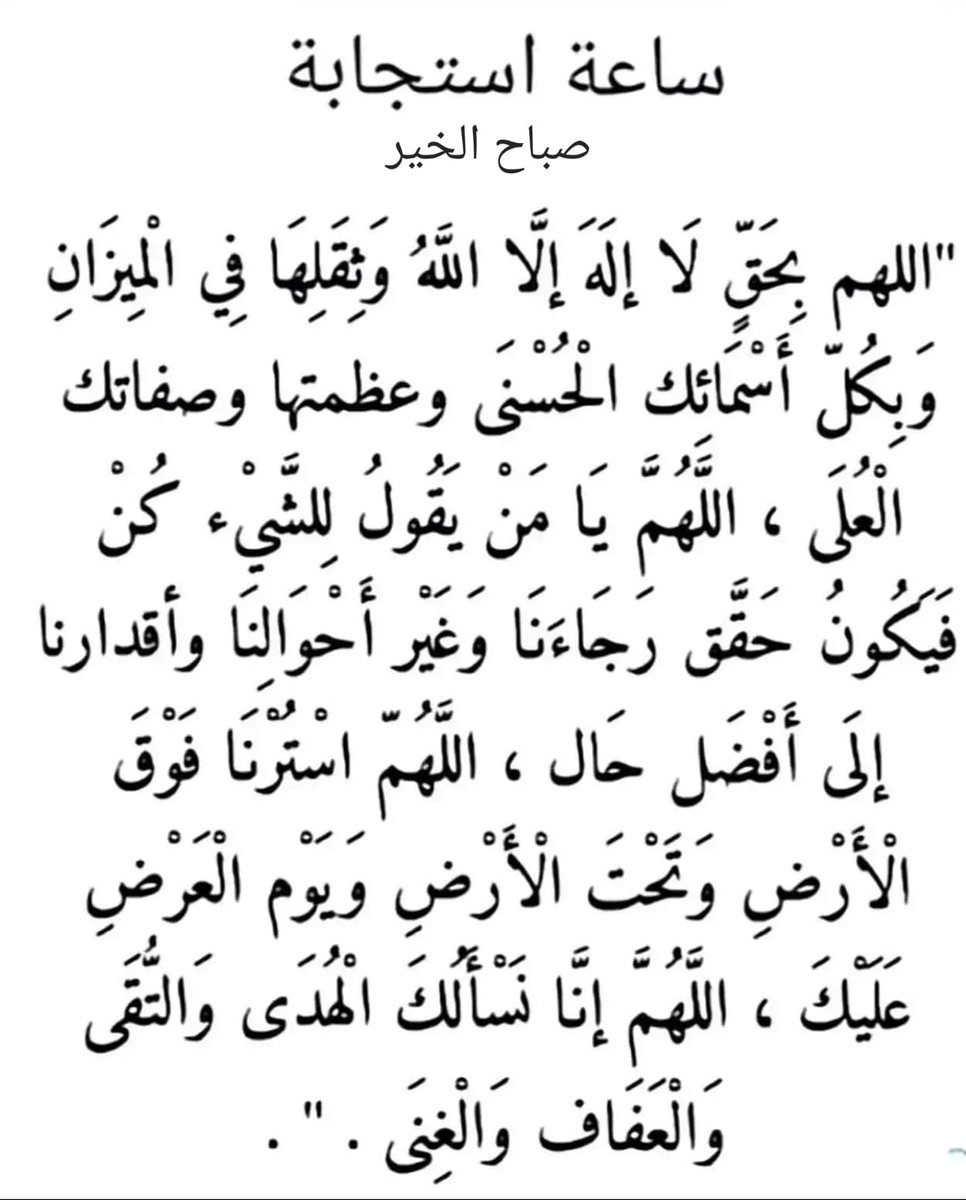 ساعة استجابة
صباح الخير
"اللهم بِحَقٍّ لَا إِلَهَ إِلَّا اللَّهُ وَثِقَلِهَا فِي الْمِيزَانِ
وَبِكُلّ أَسْمَائك الْحُسْنَى وعظمتها وصفاتك
الْعُلَى ، اللَّهُمَّ يَا مَنْ يَقُولُ لِلشَّيْء كُنْ
فَيَكُونُ حَقَّق رَجَاءَنَا وَغَيْر أَحْوَالِنَا وأقدارنا
إلَى أَفْضَل حَال ، اللَّهُمّ اسْتُرْنَا فَوْقَ
الْأَرْضِ وَتَحْتَ الْأَرْضِ وَيَوْم الْعَرْضِ
عَلَيْكَ ، اللَّهُمَّ إنَّا نَسْأَلُكَ الْهُدَى وَالتُّقَى
وَالْعَفَاف وَالْغِنَى . " .